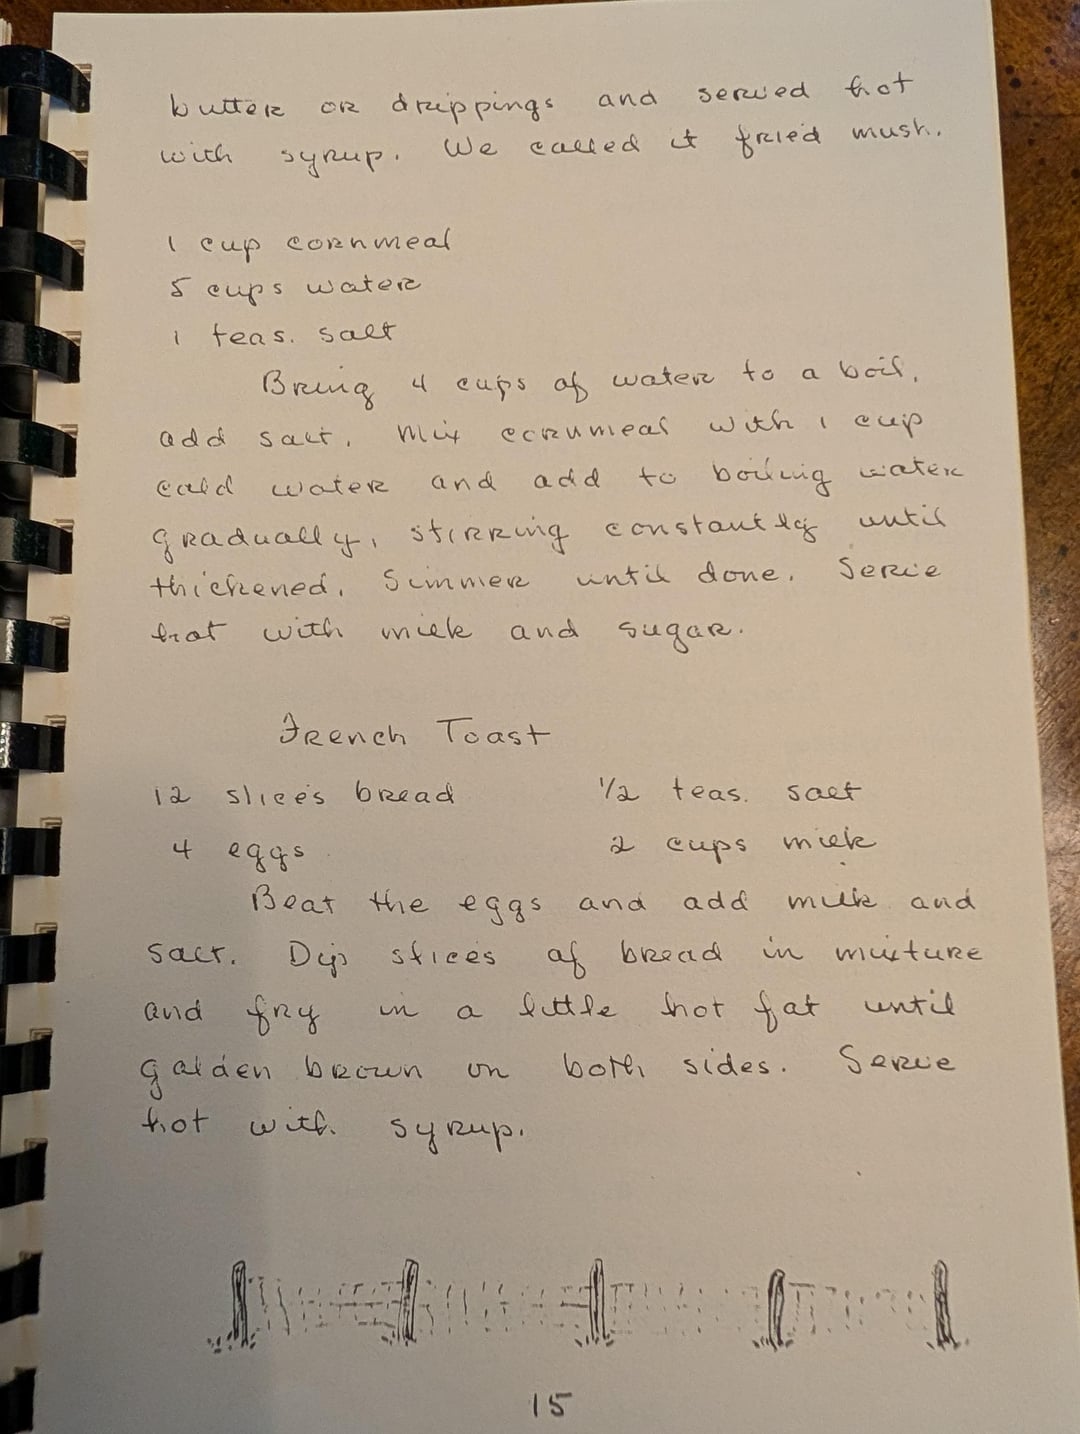 butter or drippings and served hot
with syrup. We called it fried mush.
1 cup cornmeal
5 cups water
1 teas. salt
Bring 4 cups of water to a boil,
add salt. Mix cornmeal with 1 cup
cold water and add to boiling water
gradually, stirring constantly until
thickened. Simmer until done. Serve
hot with milk and sugar.
French Toast
12 slices bread ½ teas. salt
4 eggs 2 cups milk
Beat the eggs and add milk and
salt. Dip slices of bread in mixture
and fry in a little hot fat until
golden brown on both sides. Serve
hot with syrup.
15